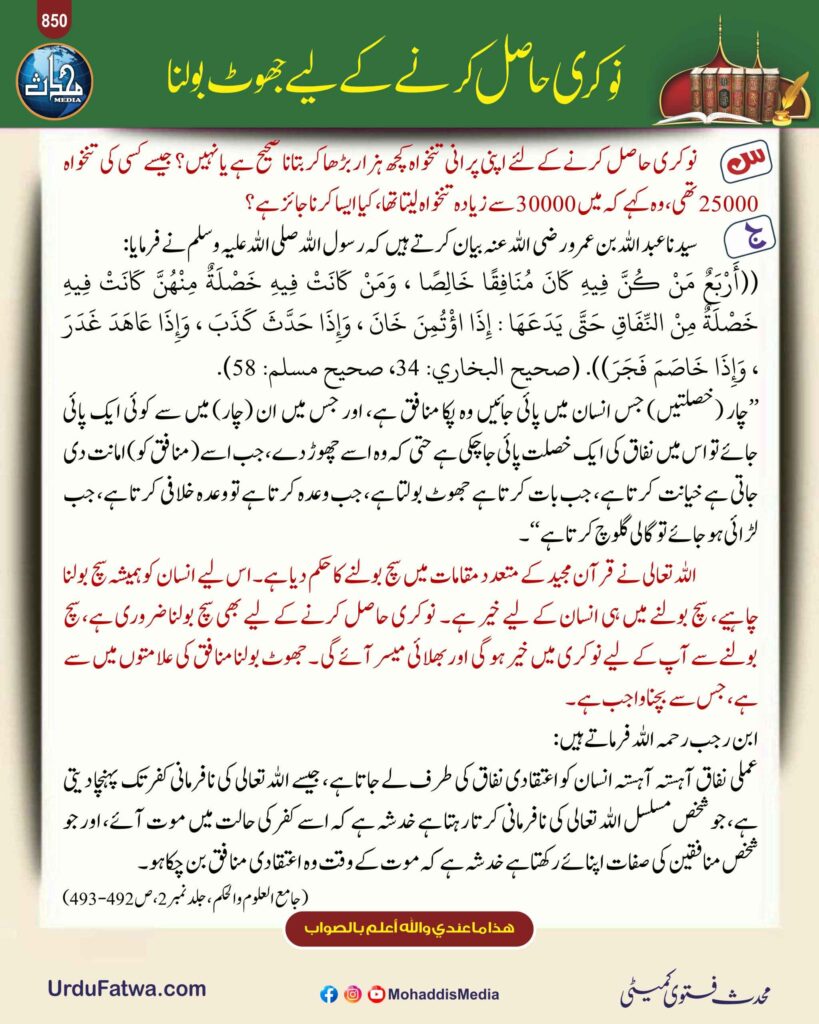 850
محدث
MEDIA
نوکری حاصل کرنے کے لیے جھوٹ بولنا
س
نوکری حاصل کرنے کے لئے اپنی پرانی تنخواہ کچھ ہزار بڑھا کر بتانا صحیح ہے یا نہیں؟ جیسے کسی کی تنخواہ
25000 تھی، وہ کہے کہ میں 30000 سے زیادہ تنخواہ لیتا تھا، کیا ایسا کرنا جائز ہے؟
ج
سیدنا عبد اللہ بن عمرو رضی اللہ عنہ بیان کرتے ہیں کہ رسول اللہ صلی اللہ علیہ وسلم نے فرمایا:
((أَرْبَعٌ مَنْ كُنَّ فِيهِ كَانَ مُنَافِقًا خَالِصًا ، وَمَنْ كَانَتْ فِيهِ خَصْلَةٌ مِنْهُنَّ كَانَتْ فِيهِ
خَصْلَةٌ مِنْ النِّفَاقِ حَتَّى يَدَعَهَا : إِذَا اؤْتُمِنَ خَانَ ، وَإِذَا حَدَّثَ كَذَبَ ، وَإِذَا عَاهَدَ غَدَرَ
، وَإِذَا خَاصَمَ فَجَرَ)). (صحيح البخاري: 34، صحيح مسلم: 58).
”چار (خصلتیں) جس انسان میں پائی جائیں وہ پکا منافق ہے، اور جس میں ان (چار) میں سے کوئی ایک پائی
جائے تو اس میں نفاق کی ایک خصلت پائی جا چکی ہے حتی کہ وہ اسے چھوڑ دے، جب اسے (منافق کو) امانت دی
جاتی ہے خیانت کرتا ہے، جب بات کرتا ہے جھوٹ بولتا ہے، جب وعدہ کرتا ہے تو وعدہ خلافی کرتا ہے، جب
لڑائی ہو جائے تو گالی گلوچ کرتا ہے“۔
اللہ تعالی نے قرآن مجید کے متعدد مقامات میں سچ بولنے کا حکم دیا ہے۔ اس لیے انسان کو ہمیشہ سچ بولنا
چاہیے، سچ بولنے میں ہی انسان کے لیے خیر ہے۔ نوکری حاصل کرنے کے لیے بھی سچ بولنا ضروری ہے، سچ
بولنے سے آپ کے لیے نوکری میں خیر ہو گی اور بھلائی میسر آئے گی۔ جھوٹ بولنا منافق کی علامتوں میں سے
ہے، جس سے بچنا واجب ہے۔
ابن رجب رحمہ اللہ فرماتے ہیں:
عملی نفاق آہستہ آہستہ انسان کو اعتقادی نفاق کی طرف لے جاتا ہے، جیسے اللہ تعالی کی نافرمانی کفر تک پہنچا دیتی
ہے، جو شخص مسلسل اللہ تعالی کی نافرمانی کرتا رہتا ہے خدشہ ہے کہ اسے کفر کی حالت میں موت آئے، اور جو
شخص منافقین کی صفات اپنائے رکھتا ہے خدشہ ہے کہ موت کے وقت وہ اعتقادی منافق بن چکا ہو۔
(جامع العلوم والحکم، جلد نمبر 2، ص 492-493)
هذا ما عندي والله أعلم بالصواب
UrduFatwa.com
MohaddisMedia
محدث فتوی کمیٹی